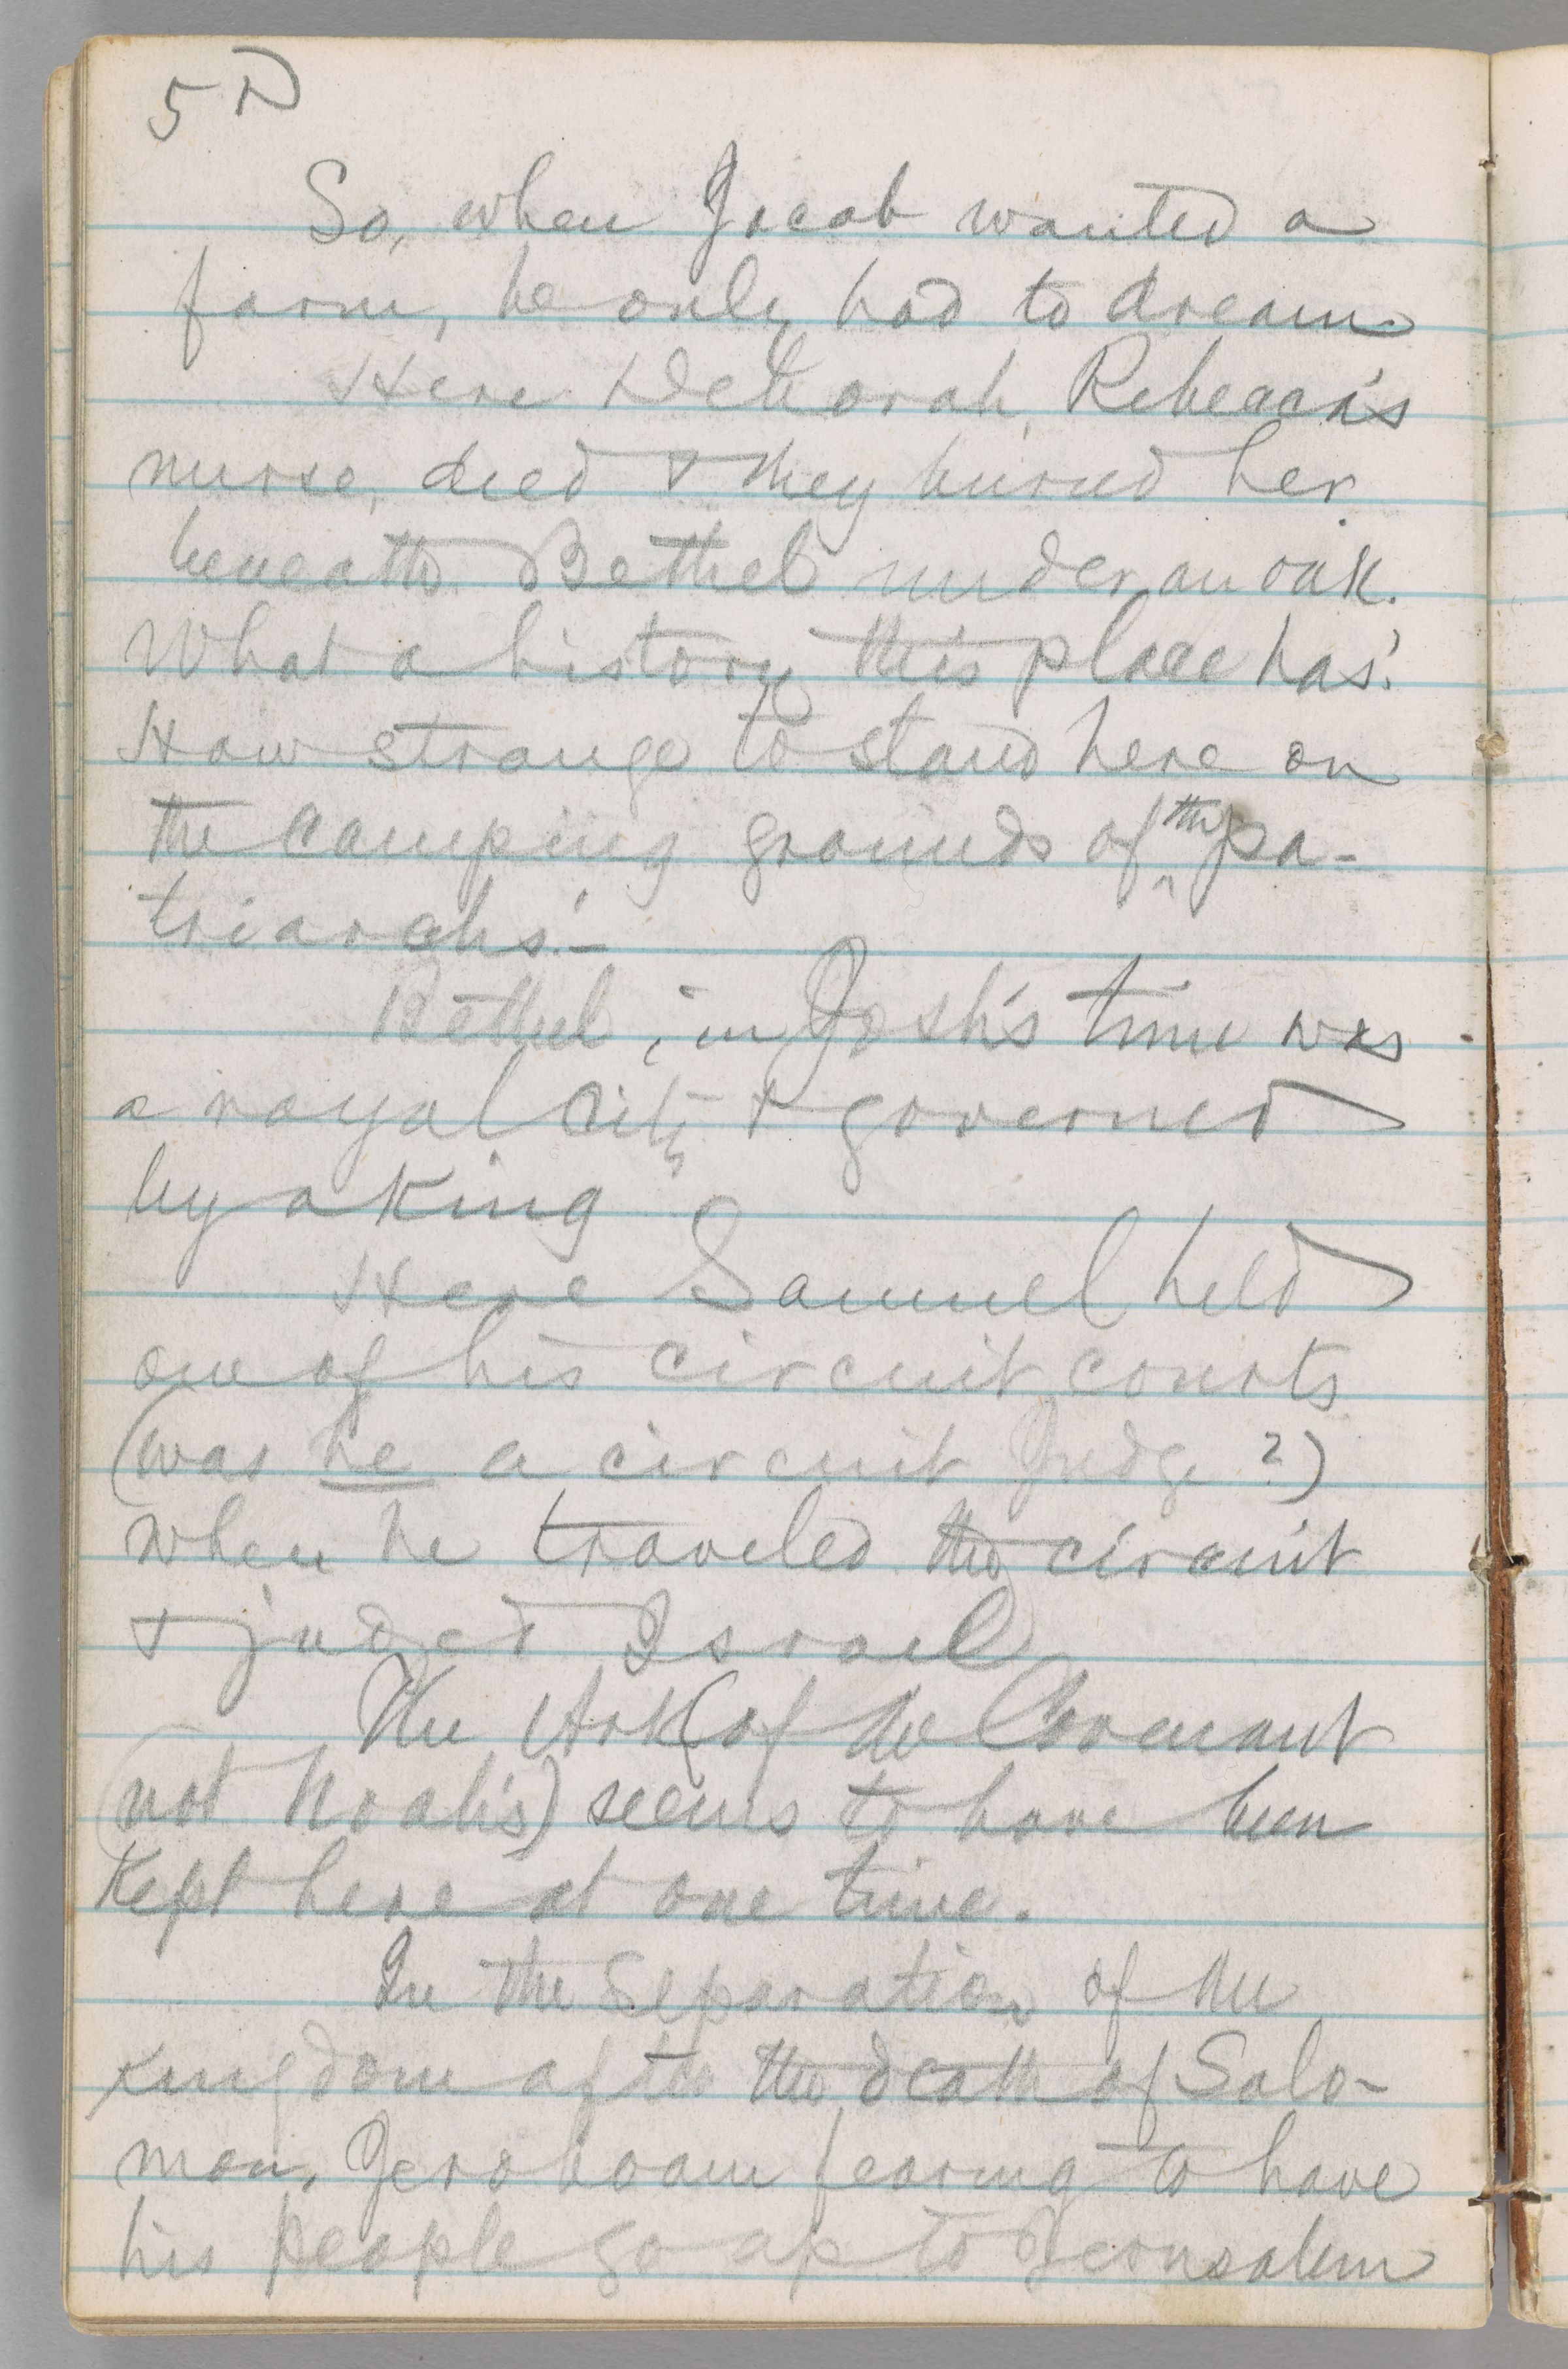 5 D
So, when Jacob wanted a
farm, he only had to dream
Here Deborah, Rebecca's
nurse, died & they buried her
beneath Bethel under an oak.
What a history this place has!
How strange to stand here on
the camping grounds of the pa-
triarchs! -
Bethel, in Josh's time was
a royal city & governed
by a king
Here Samuel held
one of his circuit courts
(was he a circuit Judge ?)
when he traveled the circuit
& judged Israel
The Ark (of the Covenant
not Noah's) seems to have been
Kept here at one time.
In the Separation of the
Kingdom after the death of Solo-
mon, Jeroboam fearing to have
his people go up to Jerusalem